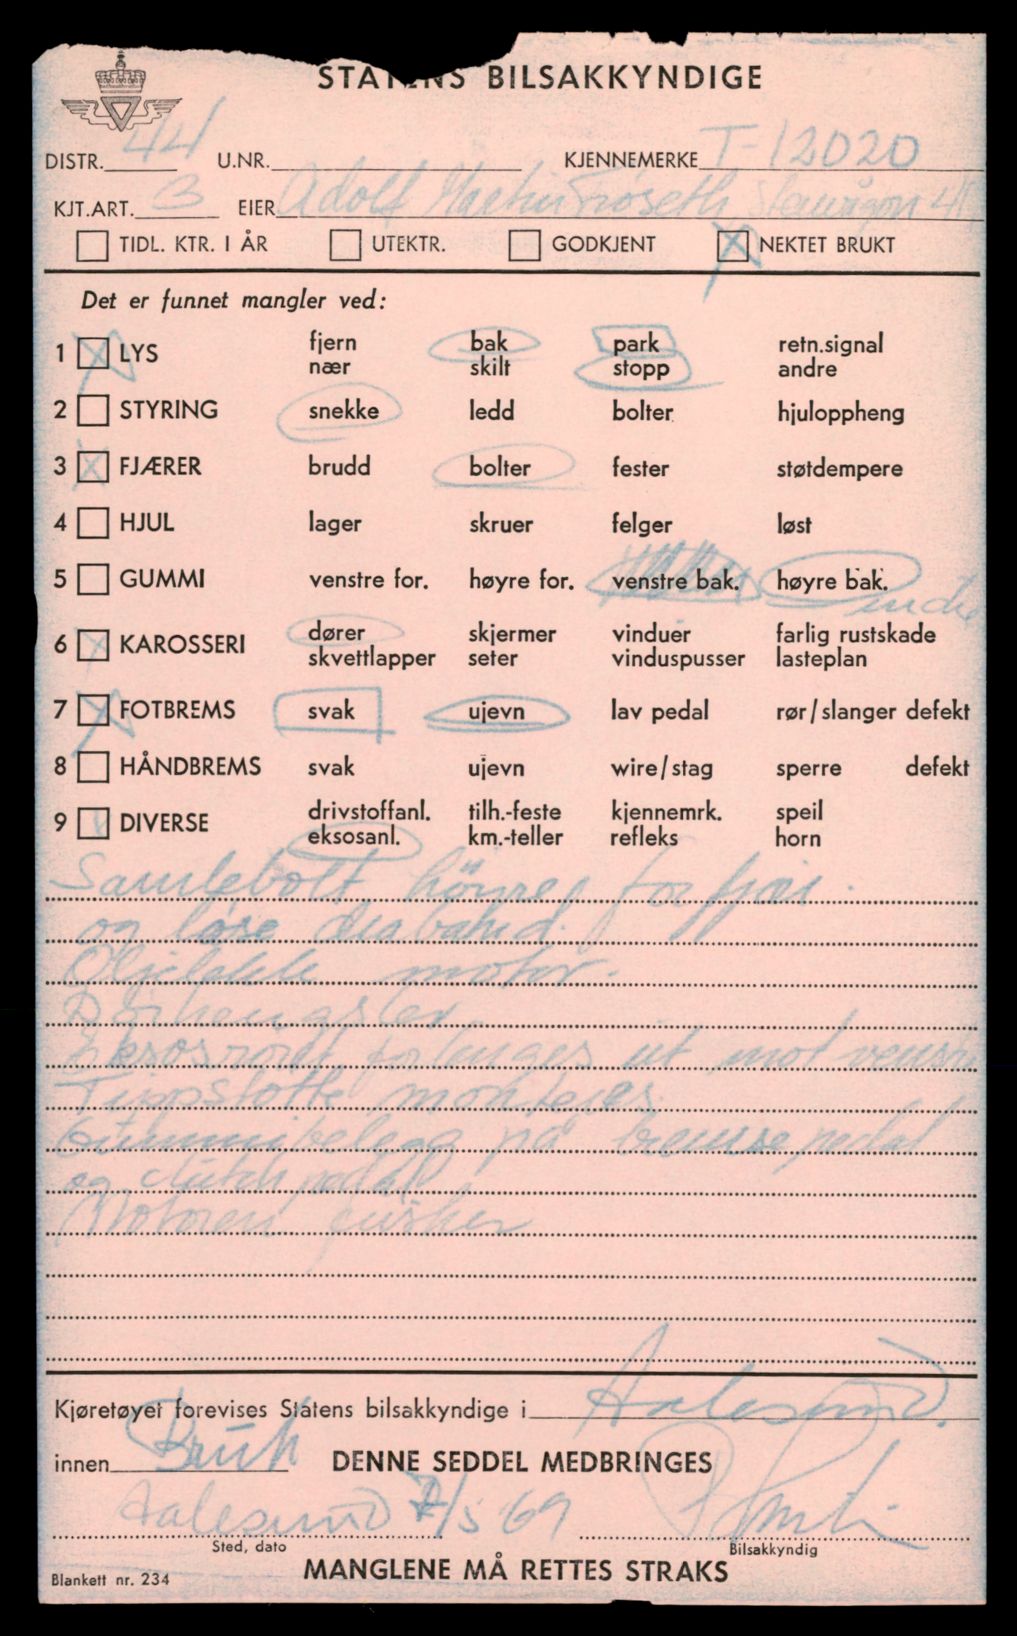 STATENS BILSAKKYNDIGE
DISTR. 44 U.NR. KJENNEMERKE T-12020
KJT.ART. 3 EIER Adolf Martin Frøseth,
TIDL. KTR. I ÅR UTEKTR. GODKJENT NEKTET BRUKT
Det er funnet mangler ved:
1 LYS fjern bak park retn.signal
nær skilt stopp andre
2 STYRING snekke ledd bolter hjuloppheng
3 FJÆRER brudd bolter fester støtdempere
4 HJUL lager skruer felger løst
5 GUMMI venstre for. høyre for. venstre bak. høyre bak.
indre
6 KAROSSERI dører skjermer vinduer farlig rustskade
skvettlapper seter vinduspusser lasteplan
7 FOTBREMS svak ujevn lav pedal rør/slanger defekt
8 HÅNDBREMS svak ujevn wire/stag sperre defekt
9 DIVERSE drivstoffanl. tilh.-feste kjennemrk. speil
eksosanl. km.-teller refleks horn
Samlebolt höyre forfjær.
og løse
Oljelekk motor.
Dörhengsler
Eksosröret forlenges ut mot
Tippstötte monteres.
Gummibelegg på bremsepedal
og clutch pedal
Motoren fusker
Kjøretøyet forevises Statens bilsakkyndige i Aalesund.
innen Bruk DENNE SEDDEL MEDBRINGES
Aalesund 7/5 69
Sted, dato Bilsakkyndig
Blankett nr. 234 MANGLENE MÅ RETTES STRAKS